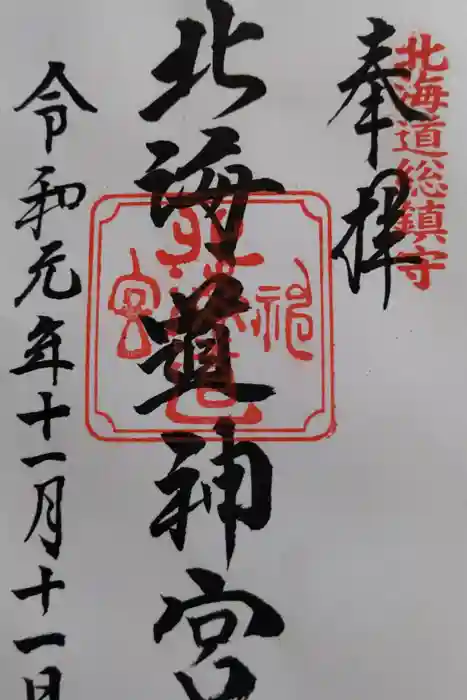 北海道総鎮守
奉拝
北海道神宮
令和元年十一月十一日